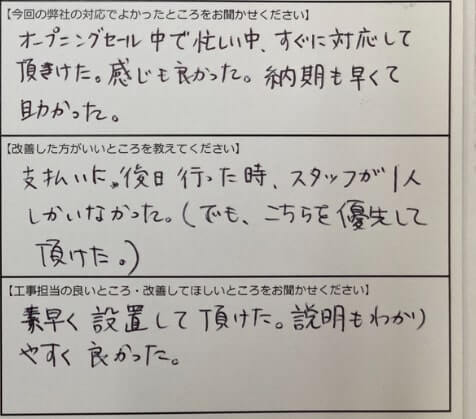 【今回の弊社の対応でよかったところをお聞かせください】
オープニングセール中で忙しい中、すぐに対応して
頂きけた。感じも良かった。納期も早くて
助かった。
【改善した方がいいところを教えてください】
支払いに、後日行った時、スタッフが1人
しかいなかった。(でも、こちらを優先して
頂けた。)
【工事担当の良いところ・改善してほしいところをお聞かせください】
素早く設置して頂けた。説明もわかり
やすく良かった。